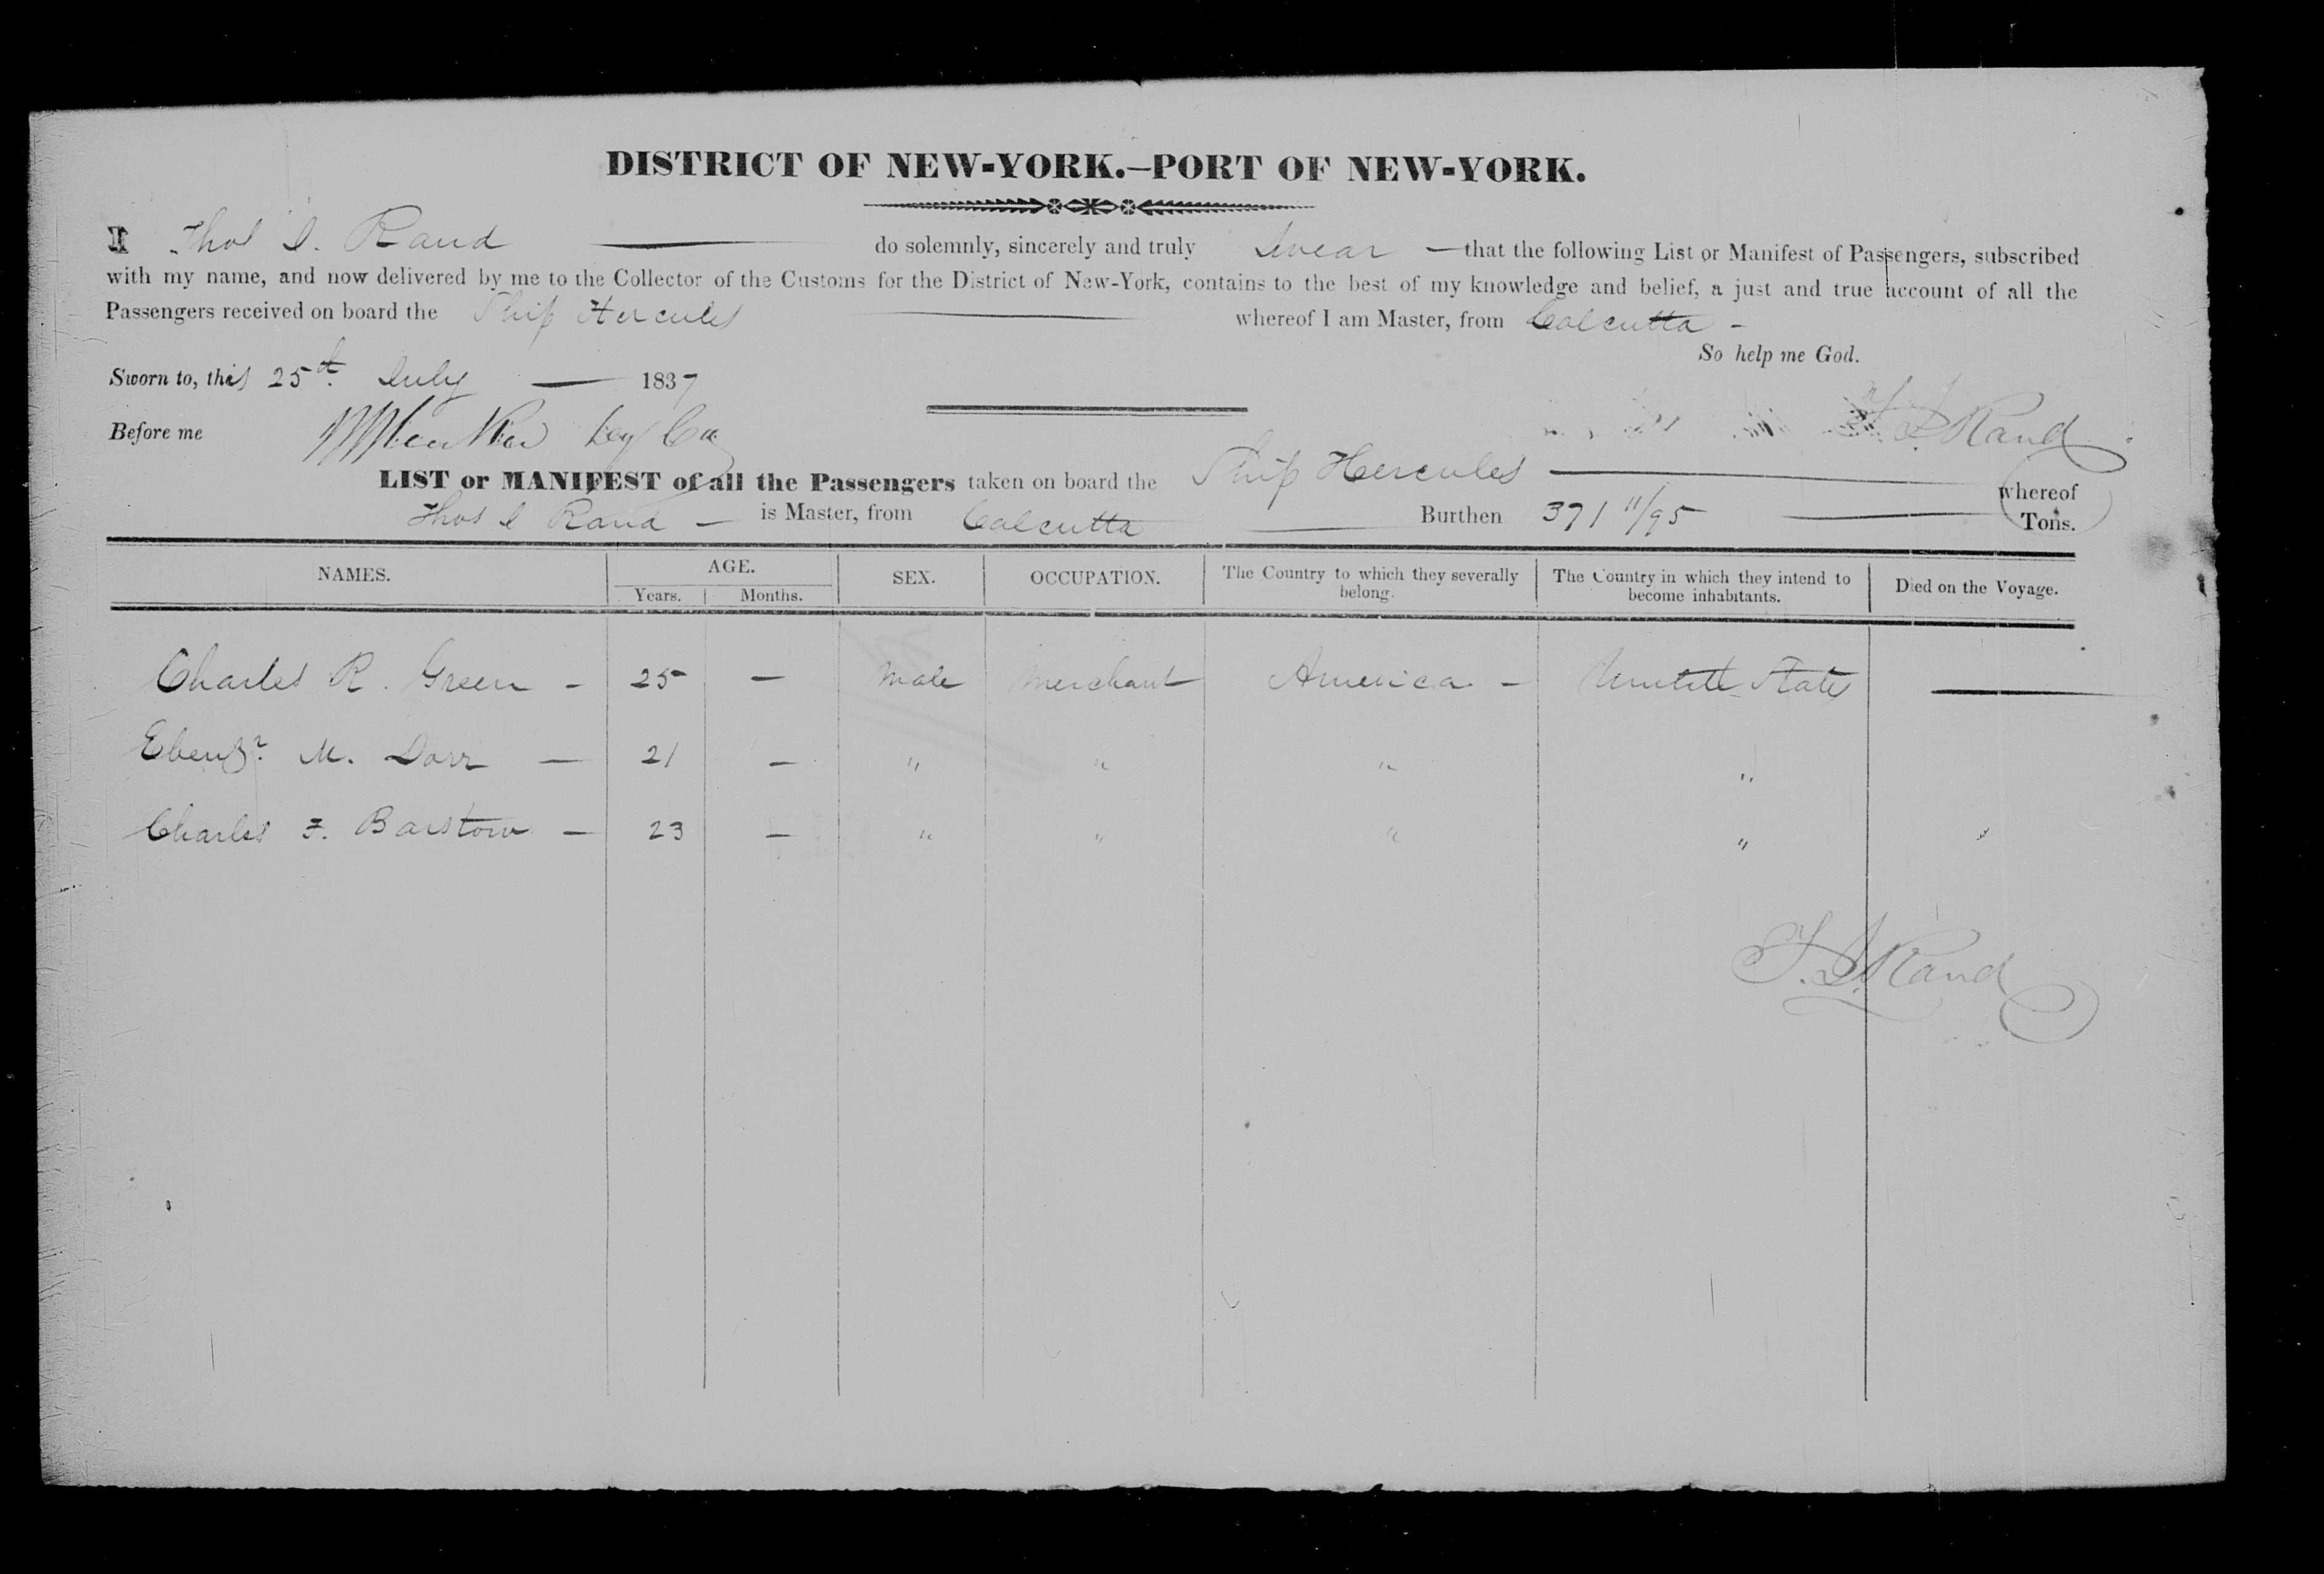 DISTRICT OF NEW-YORK.—PORT OF NEW-YORK.
I Thos S. Rand — do solemnly, sincerely and truly Swear — that the following List or Manifest of Passengers, subscribed
with my name, and now delivered by me to the Collector of the Customs for the District of New-York, contains to the best of my knowledge and belief, a just and true account of all the
Passengers received on board the Ship Hercules — whereof I am Master, from Calcutta -
So help me God.
Sworn to, this 25th July — 1837
Before me
T. S. Rand
LIST or MANIFEST of all the Passengers taken on board the Ship Hercules — whereof
Thos S Rand — is Master, from Calcutta — Burthen 371 11/95 — Tons.
NAMES. AGE. SEX. OCCUPATION. The Country to which they severally belong. The Country in which they intend to become inhabitants. Died on the Voyage.
Years. Months.
Charles R. Green - 25 — Male Merchant America - United States —
Ebenzr M. Dorr — 21 — " " " "
Charles F. Barstow — 23 — " " " " "
T. S. Rand